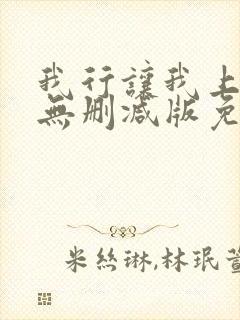 我行讓我上
無刪減版免
米絲琳,林珉萱